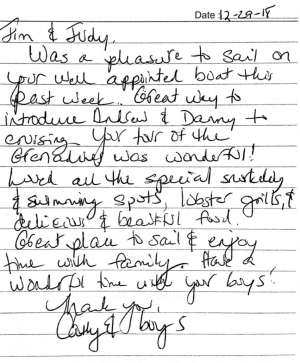 Date 12-29-18
Jim & Judy,
Was a pleasure to sail on
your well appointed boat this
past week. Great way to
introduce Andrew & Danny to
cruising. Your tour of the
Grenadines was wonderful!
Loved all the special
& swimming spots, lobster grills, &
delicious & beautiful food.
Great place to sail & enjoy
time with family. Have a
wonderful time with your boys!
Thank you,
& boys